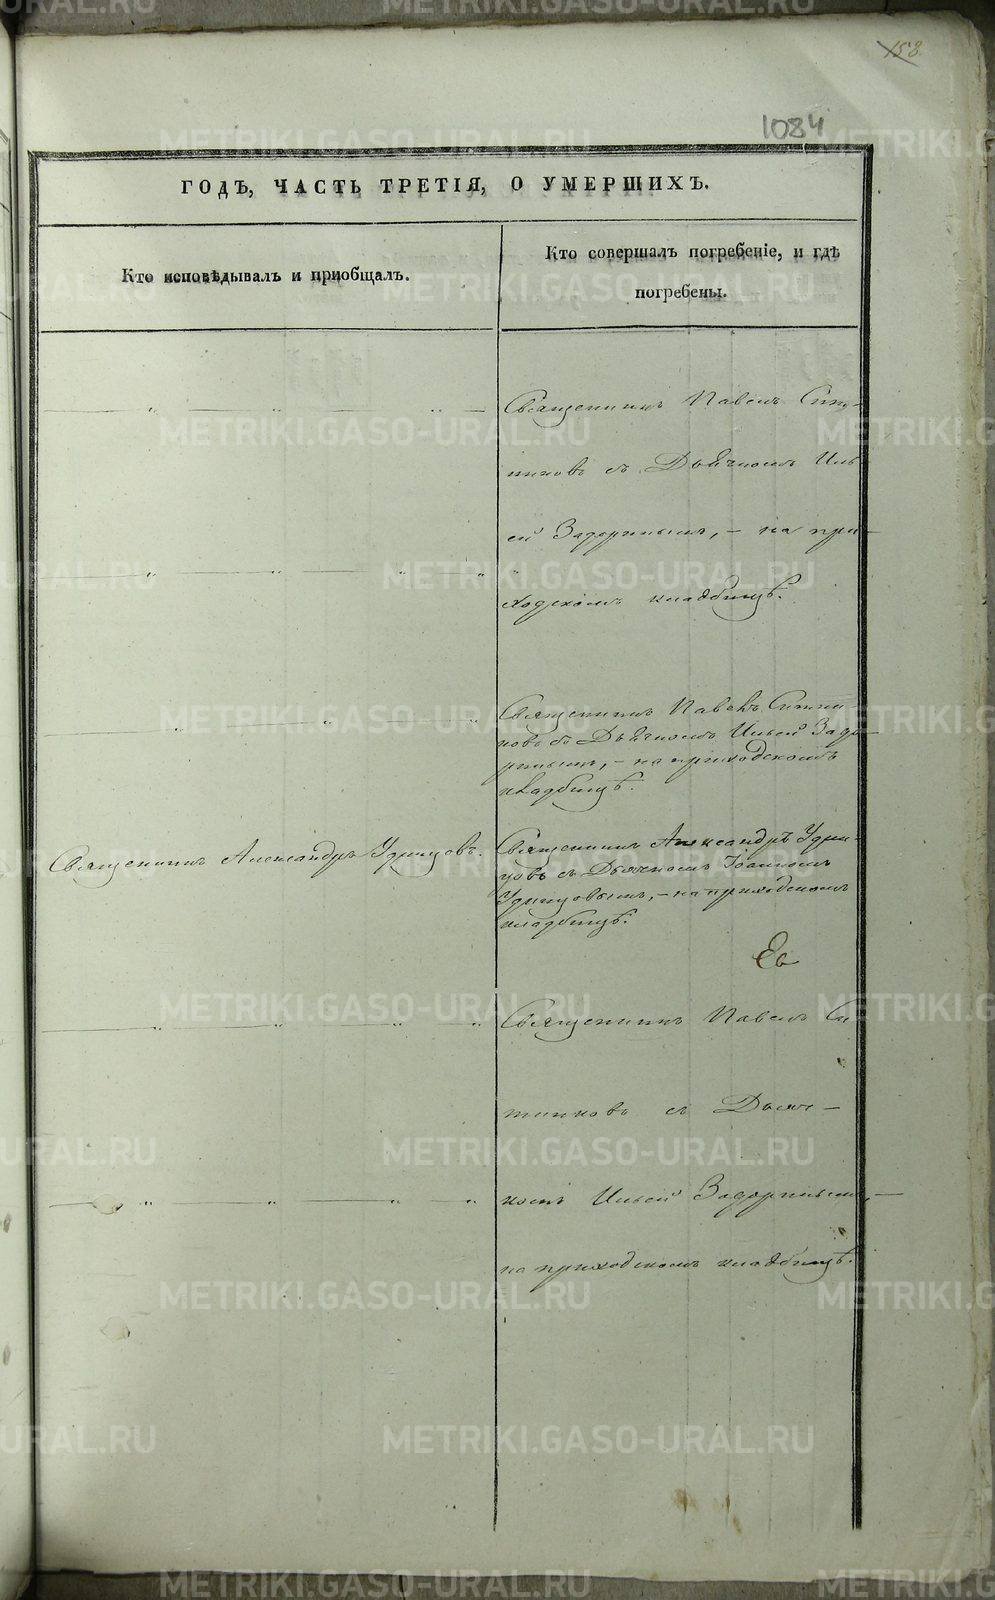 158
1084
ГОДЪ, ЧАСТЬ ТРЕТІЯ, О УМЕРШИХЪ.
Кто исповѣдывалъ и пріобщалъ.
Кто совершалъ погребеніе, и гдѣ
погребены.
Священникъ Павелъ Ситни-
никовъ съ Дьячкомъ Иль-
ей Задоринымъ, – на при-
ходскомъ кладбищѣ.
Священникъ Павелъ Ситни-
ковъ съ Дьячкомъ Ильей Задо-
ринымъ, – на приходскомъ
кладбищѣ.
Священникъ Александръ Удинцовъ.
Священникъ Александръ Удин-
цовъ съ Дьячкомъ Іоанномъ
Удинцовымъ, – на приходскомъ
кладбищѣ.
Священникъ Павелъ Си
тниковъ съ Дьяч-
комъ Ильей Задоринымъ, –
на приходскомъ кладбищѣ.
METRIKI.GASO-URAL.RU